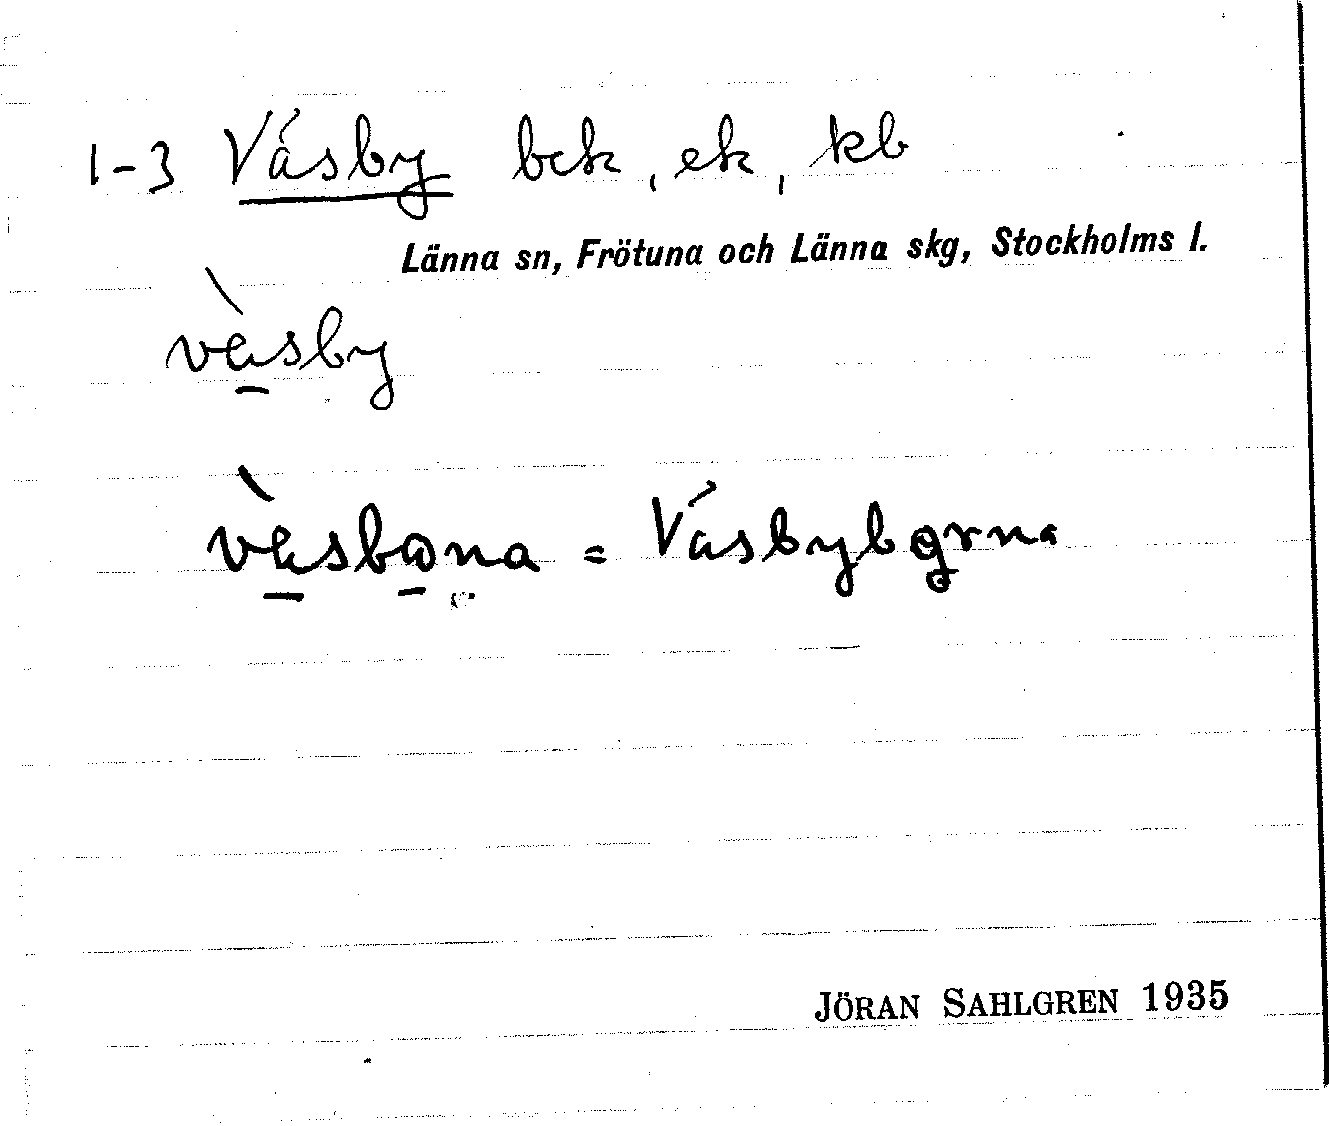 1-3 Väsby bck, ek, kb
Länna sn, Frötuna och Länna skg, Stockholms l.
vàsby
= Väsbyborna
JÖRAN SAHLGREN 1935